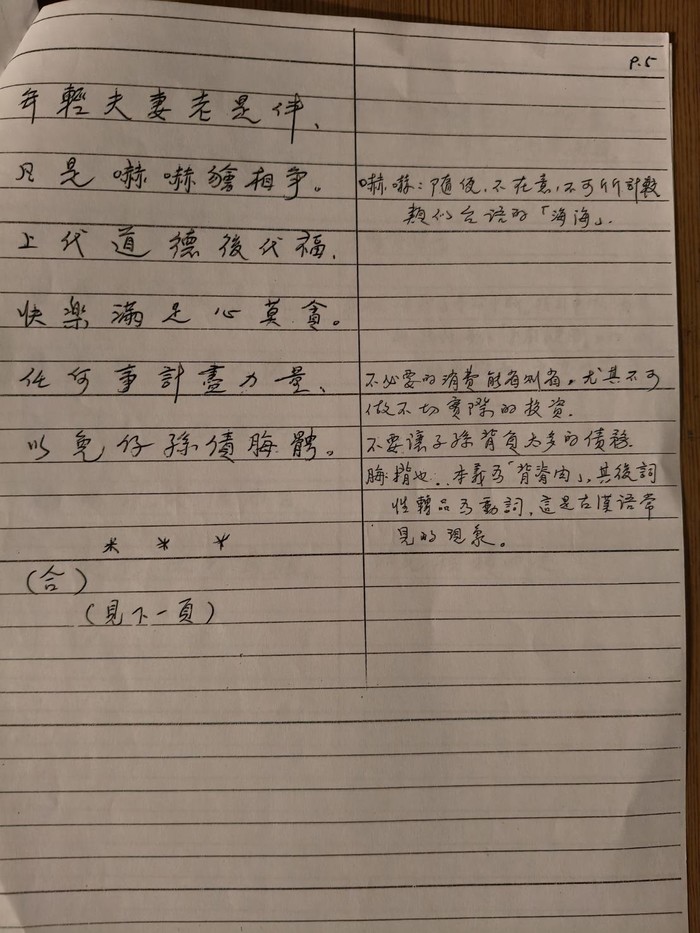 P.5
年輕夫妻老是伴、
凡是嚇嚇 相爭。
上代道德後代福、
快樂滿足心莫貪。
任何事計盡力量、
以免仔孫債脢骿。
＊ ＊ ＊
(合)
(見下一頁)
嚇嚇：隨便、不在意、不可斤斤計較
類似台語的「海海」、
不必要的消費能省則省。尤其不可
做不切實際的投資、
不要讓子孫背負太多的債務、
脢：揹也．本義為「背脊肉」，其後詞
性轉品為動詞，這是古漢語常
見的現象。